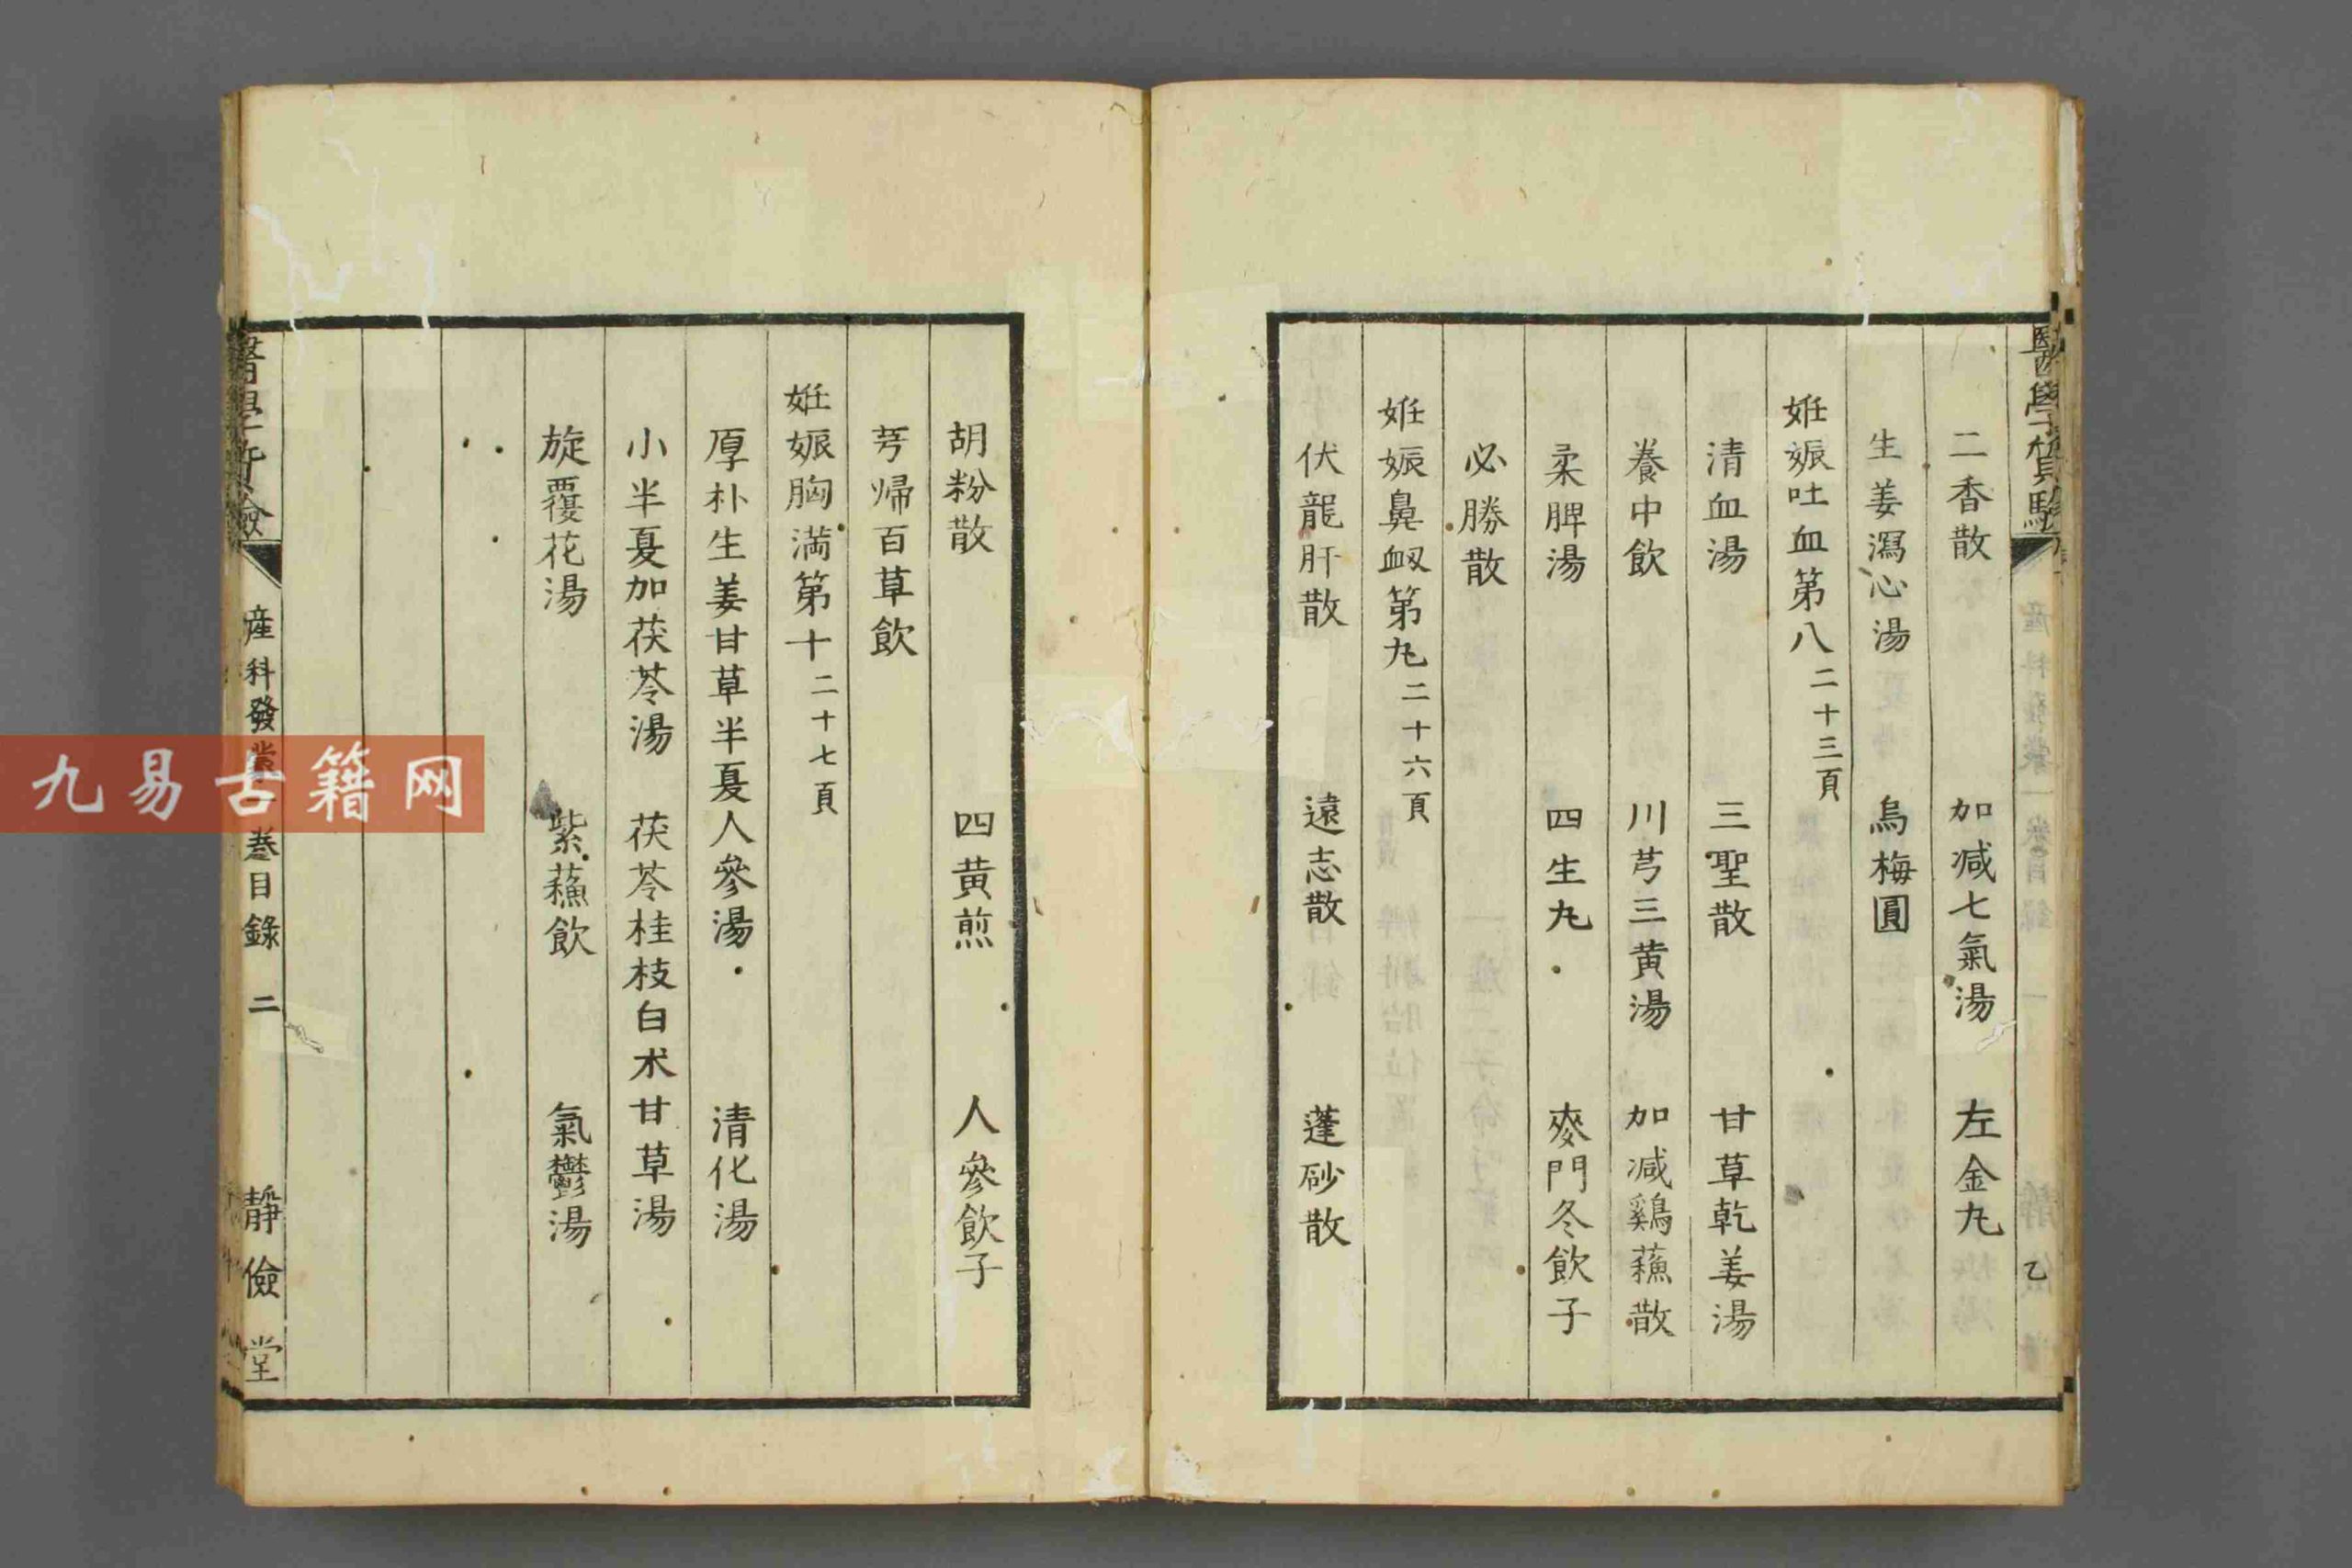 醫學質驗
二香散 加減七氣湯 左金丸
生姜瀉心湯 烏梅圓
姙娠吐血第八 二十三頁
清血湯 三聖散 甘草乾姜湯
養中飲 川芎三黄湯 加減鷄蘓散
柔脾湯 四生丸 麥門冬飲子
必勝散
姙娠鼻衂第九 二十六頁
伏龍肝散 遠志散 蓬砂散
胡粉散 四黄煎 人參飲子
芎歸百草飲
姙娠胸満第十 二十七頁
厚朴生姜甘草半夏人參湯 清化湯
小半夏加茯苓湯 茯苓桂枝白朮甘草湯
旋覆花湯 紫蘓飲 氣鬱湯
醫學質驗 産科發蒙一巻目錄 二 靜儉堂
九易古籍网